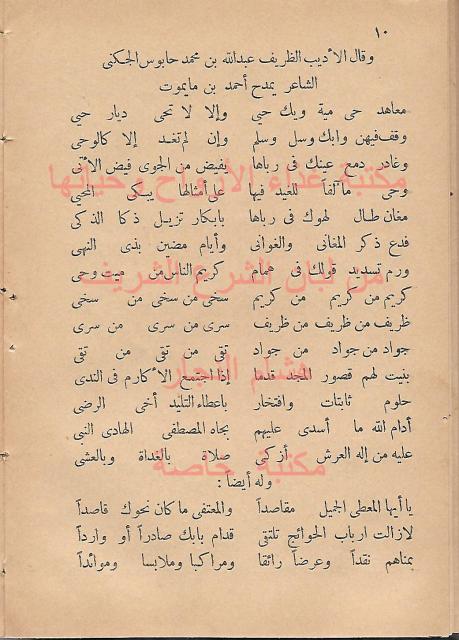 ١٠
وقال الأديب الظريف عبدالله بن محمد حابوس الجكنى
الشاعر يمدح أحمد بن مايموت
معاهد حى مية ويك حيي وإلا لا تحى ديار حيي
وقف فيهن وابك وسل وسلم وإن لم تغد إلا كالوحى
وغادر دمع عينك فى رباها بفيض من الجوى فيض الأتى
وحى مألفاً للغيد فيها على أمثالها يبكى المحيي
مغان طال لهوك فى رباها بابكار تزيل ذكا الذكى
فدع ذكر المغانى والغوانى وأيام مضين بذى النهى
ورم تسديد قولك فى همام كريم الناس من ميت وحى
كريم من كريم من كريم سخى من سخى من سخى
ظريف من ظريف من ظريف سرى من سرى من سرى
جواد من جواد من جواد تقى من تقى من تقى
بنيت لهم قصور المجد قدما إذا اجتمع الأكارم فى الندى
حلوم ثابتات وافتخار باعطاء التليد أخى الرضى
أدام الله ما أسدى عليهم بجاه المصطفى الهادى النبي
عليه من إله العرش أزكى صلاة بالغداة وبالعشى
وله أيضاً :
يا أيها المعطى الجميل مقاصداً والمعتفى ما كان نحوك قاصداً
لازالت ارباب الحوائج تلتقى قدام بابك صادراً أو وارداً
بمناهم نقداً وعرضاً رائقا ومراكبا وملابسا وموائداً
مكتبة غذاء الأرواح وحياتها
من لبان الشرع الشريف
هشام النجار
مكتبة خاصة